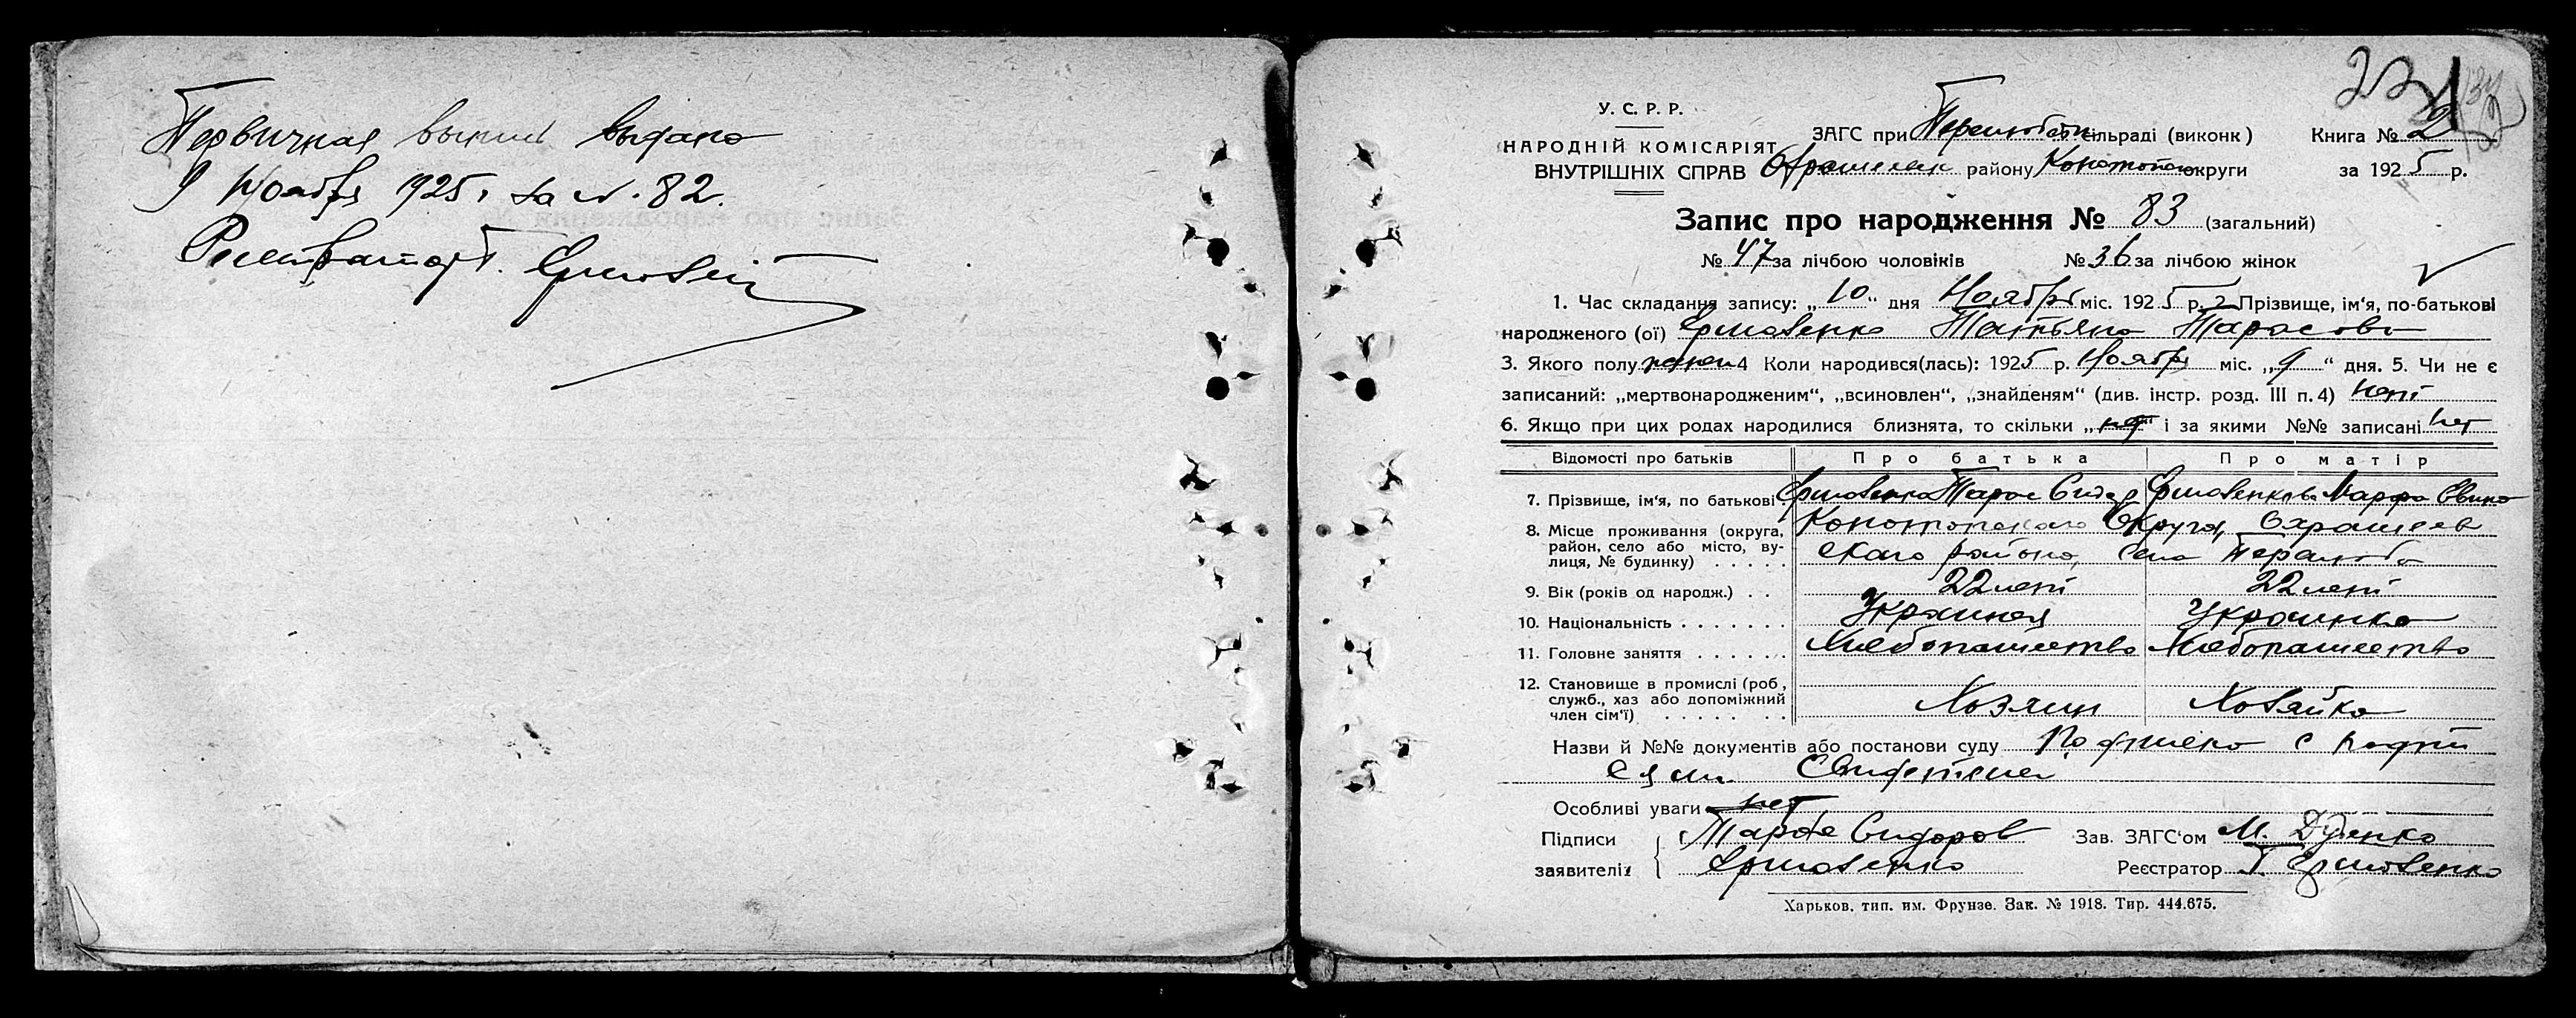 Первичная выпись выдана
9 Ноября 1925 г за №. 82.
Регистратор.
22
У. С. Р. Р.
НАРОДНІЙ КОМІСАРІЯТ
ВНУТРІШНІХ СПРАВ
ЗАГС при Перелюбск сільраді (виконк)
району Конотопско округи
Книга № 2
за 1925 р.
Запис про народження № 83 (загальний)
№ 47 за лічбою чоловіків № 36 за лічбою жінок
1. Час складання запису: „10“ дня Ноября міс. 1925 р. 2 Прізвище, ім'я, по-батькові
народженого (ої) Ермоленко Татьяна Тарасовн
3. Якого полу женск 4 Коли народився(лась): 1925 р. Ноября міс. „9“ дня. 5. Чи не є
записаний: „мертвонародженим“, „всиновлен“, „знайденям“ (див. інстр. розд. III п. 4) нет
6. Якщо при цих родах народилися близнята, то скільки „нет“ і за якими №№ записані нет
Відомості про батьків Про батька Про матір
7. Прізвище, ім'я, по батькові Ермоленко Тарас Сидор Ермоленкова Марфа
8. Місце проживання (округа, район, село або місто, вулиця, № будинку) . . . . . Конотопскаго Округа, Охрамеев
скаго района, села Перелюба
9. Вік (років од народж.) . . 22 лет 22 лет
10. Національність . . . . . . . Украинец Украинка
11. Головне заняття . . . . . . Хлебопашество Хлебопашество
12. Становище в промислі (роб, служб., хаз або допоміжний член сім'ї) . . . . . . . Хозяин Хозяйка
Назви й №№ документів або постанови суду Подписка с
Особливі уваги нет
Підписи Тарас Сидоров Зав. ЗАГС'ом М.
заявителів Ермоленко Реєстратор Г. Ермоленко
Харьков, тип. им. Фрунзе. Зак. № 1918. Тир. 444.675.